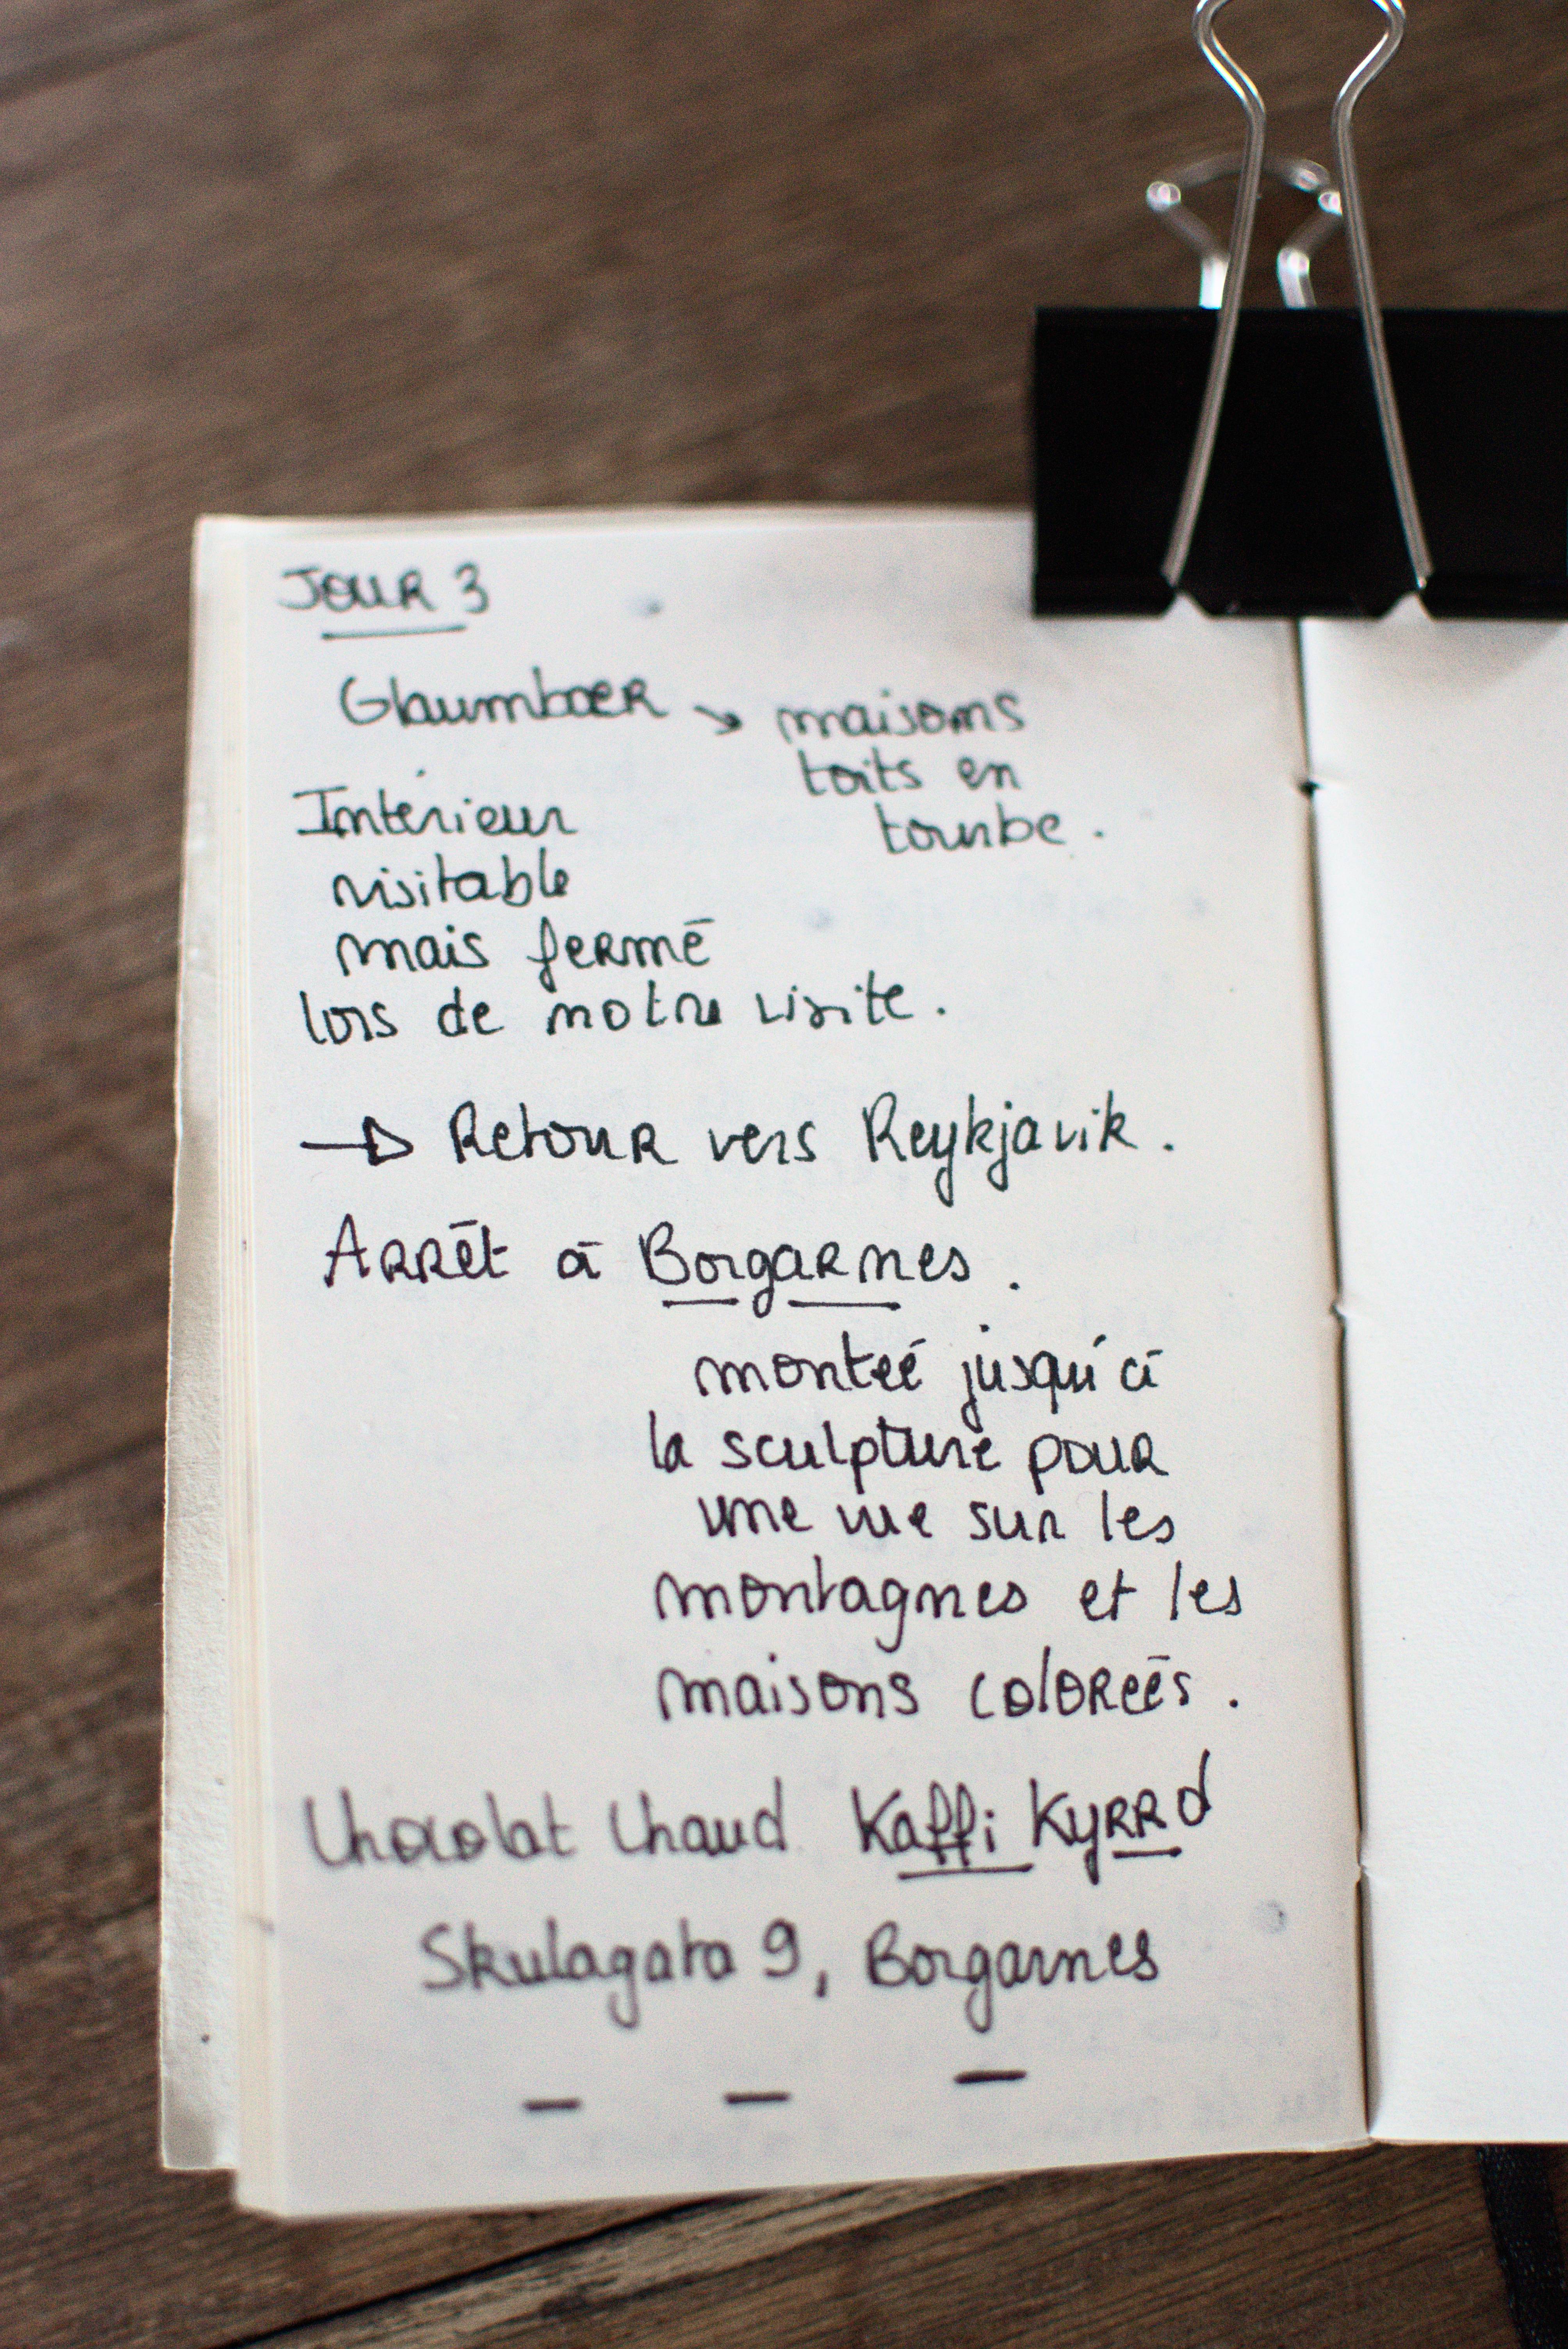 JOUR 3
Glaumbaer ↘ maisons
toits en
tourbe.
Intérieur
visitable
mais fermé
lors de notre visite.
→ Retour vers Reykjavik.
Arrêt à Borgarnes.
montée jusqu'à
la sculpture pour
une vue sur les
montagnes et les
maisons colorées.
Chocolat chaud Kaffi Kyrrd
Skulagata 9, Borgarnes
— — —